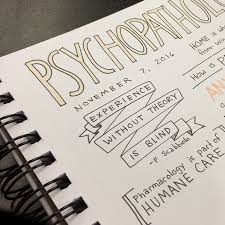 PSYCHOPATHOL
NOVEMBER 7, 2016
EXPERIENCE
WITHOUT THEORY
IS BLIND
HOME is w
from wi
How is P
AN
[Pharmacology is part of
HUMANE CARE